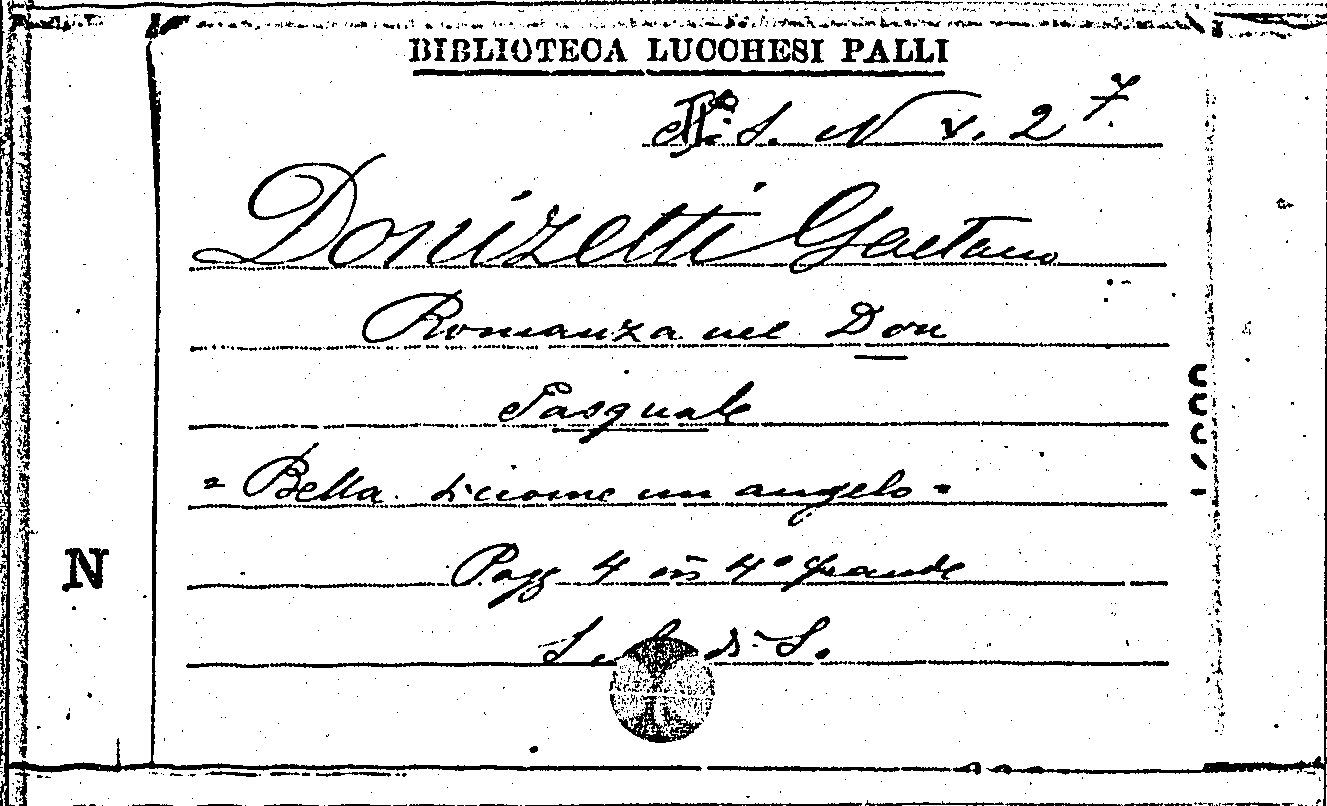 BIBLIOTECA LUCCHESI PALLI
S. N V. 2 7.
Donizetti Gaetano
Romanza nel Don
Pasquale
= Bella siccome un angelo =
N
Pagg 4 in 4º grande
S. di S.